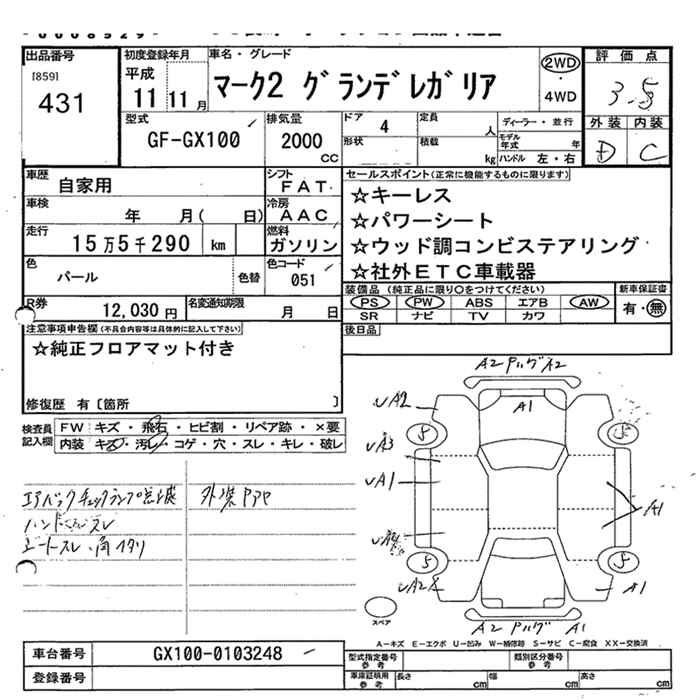 出品番号
[859]
431
初度登録年月
平成
11 11月
車名・グレード
マーク2 グランデレガリア
2WD
・
4WD
評価点
3.5
外装 内装
D C
型式
GF-GX100
排気量
2000
CC
ドア
4
形状
定員
人
積載
kg
ディーラー・並行
モデル年式 年
ハンドル 左・右
車歴
自家用
シフト
FAT
車検
年 月( 日)
冷房
AAC
走行
15万5千290 km
燃料
ガソリン
色
パール
色替
色コード
051
R券
12,030円
名変通知期限
月 日
セールスポイント(正常に機能するものに限ります)
☆キーレス
☆パワーシート
☆ウッド調コンビステアリング
☆社外ETC車載器
装備品(純正品に限り○をつけてください)
PS PW ABS エアB AW
SR ナビ TV カワ
新車保証書
有・無
後日品
注意事項申告欄(不具合内容等は具体的に記入して下さい)
☆純正フロアマット付き
修復歴 有〔箇所 〕
検査員記入欄
FW キズ・飛石・ヒビ割・リペア跡・×要
内装 キズ・汚レ・コゲ・穴・スレ・キレ・破レ
エアバックチェックランプ点灯
ハンドルスレ
シートスレ
A2 A2
A1
A2
A3
A1
A2
A1
A1
A2 A1
5
5
5
5
スペア
A-キズ E-エクボ U-凹み W-補修跡 S-サビ C-腐食 XX-交換済
車台番号
GX100-0103248
登録番号
型式指定番号
参考
類別区分番号
参考
車庫証明用
参考
長さ cm
幅 cm
高さ cm